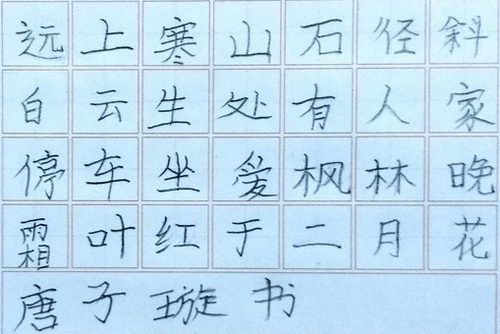 远上寒山石径斜
白云生处有人家
停车坐爱枫林晚
霜叶红于二月花
唐子璇书